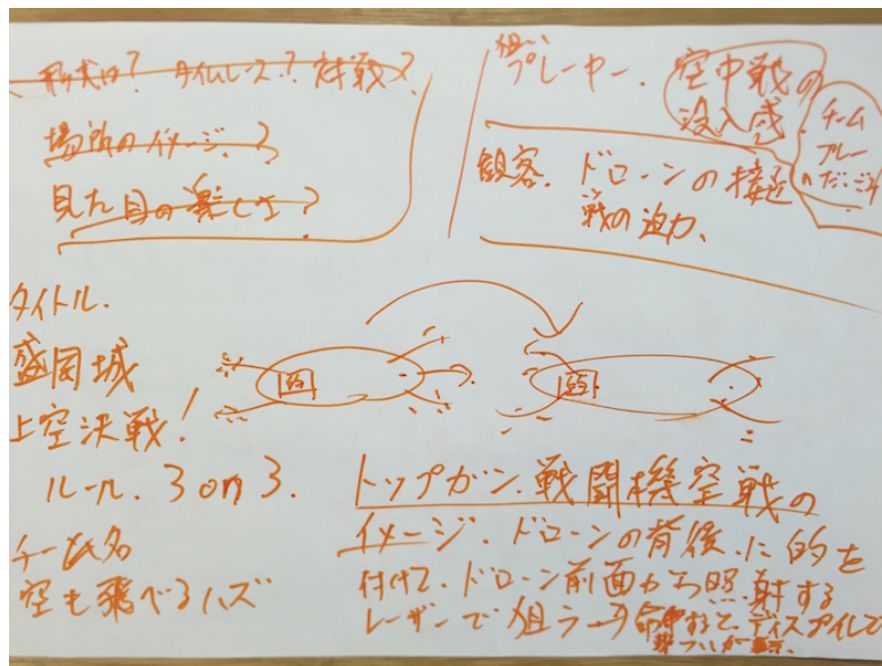 形式は? タイムレース? 対戦?
場所のイメージ.?
見た目の楽しさ?
狙い
プレーヤー. 空中戦の
没入感.
チーム
プレー
のだいごみ
観客. ドローンの接近
戦の迫力、
タイトル.
盛岡城
上空決戦!
ルール. 3 on 3.
チーム名
空も飛べるハズ
トップガン.戦闘機空戦の
イメージ. ドローンの背後.に的を
付けて、ドローン前面から照射する
レーザーで狙う→命中すると、ディスプレイで